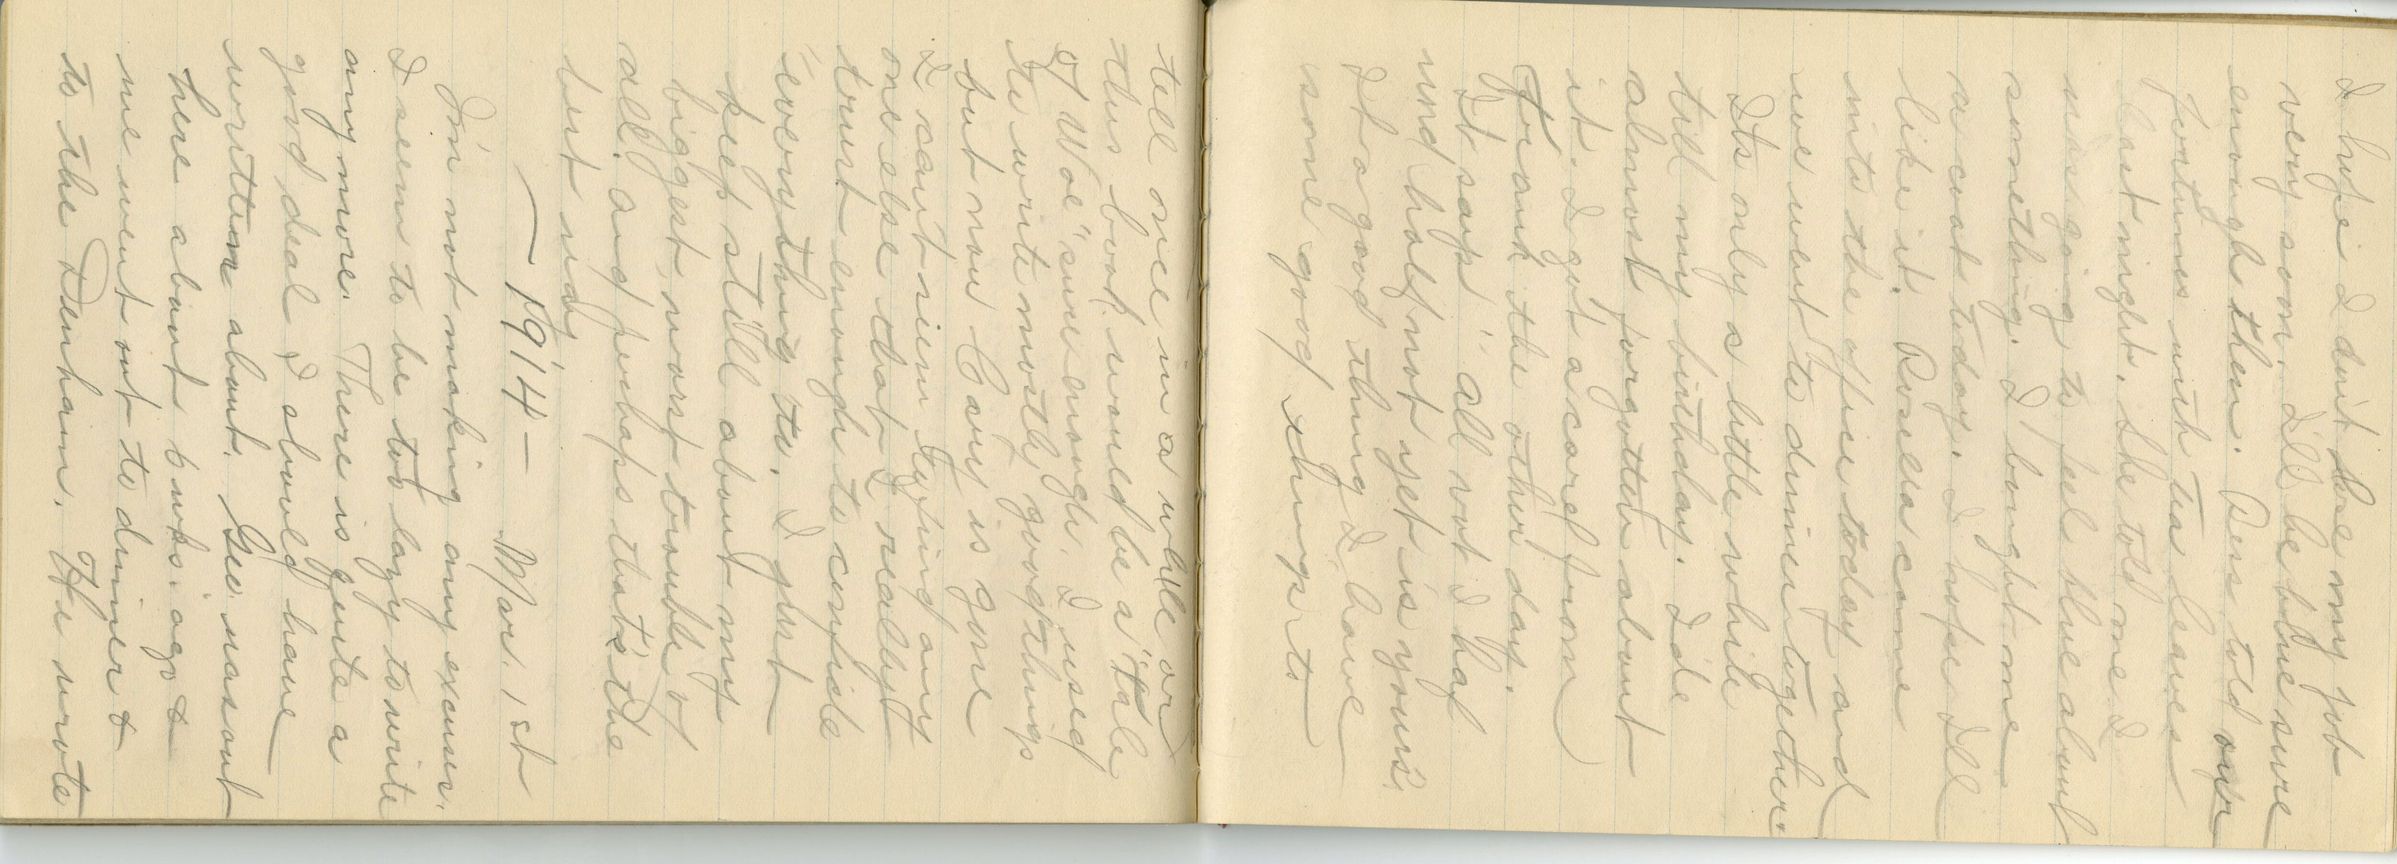 I hope I don't lose my job
very soon. I'll be blue sure
enough then. Bess told our
fortunes with tea leaves
last night. She told me I
was going to feel blue about
something. I bought me
a coat today. I hope I'll
like it. Rosella came
into the office today and
we went to dinner together
It's only a little while
till my birthday. I'de
almost forgotten about
it. I got a card from
Frank the other day.
It says "All not I haf
und half not yet is yours.
It a good thing I have
some good things to
tell once in a while, or
this book would be a "Tale
of Woe" sure enough. I used
to write mostly good things
but now Cary is gone
I can't seem to find any
one else that I really
trust enough to confide
everything to. I just
keep still about my
biggest, worst trouble of
all. and perhaps that's the
best way
— 1914 — Mar. 1st
I'm not making any excuses.
I seem to be too lazy to write
any more. There is quite a
good deal I should have
written about. Geo. was out
here about 6 wks. ago &
we went out to dinner &
to the Denham. He wrote